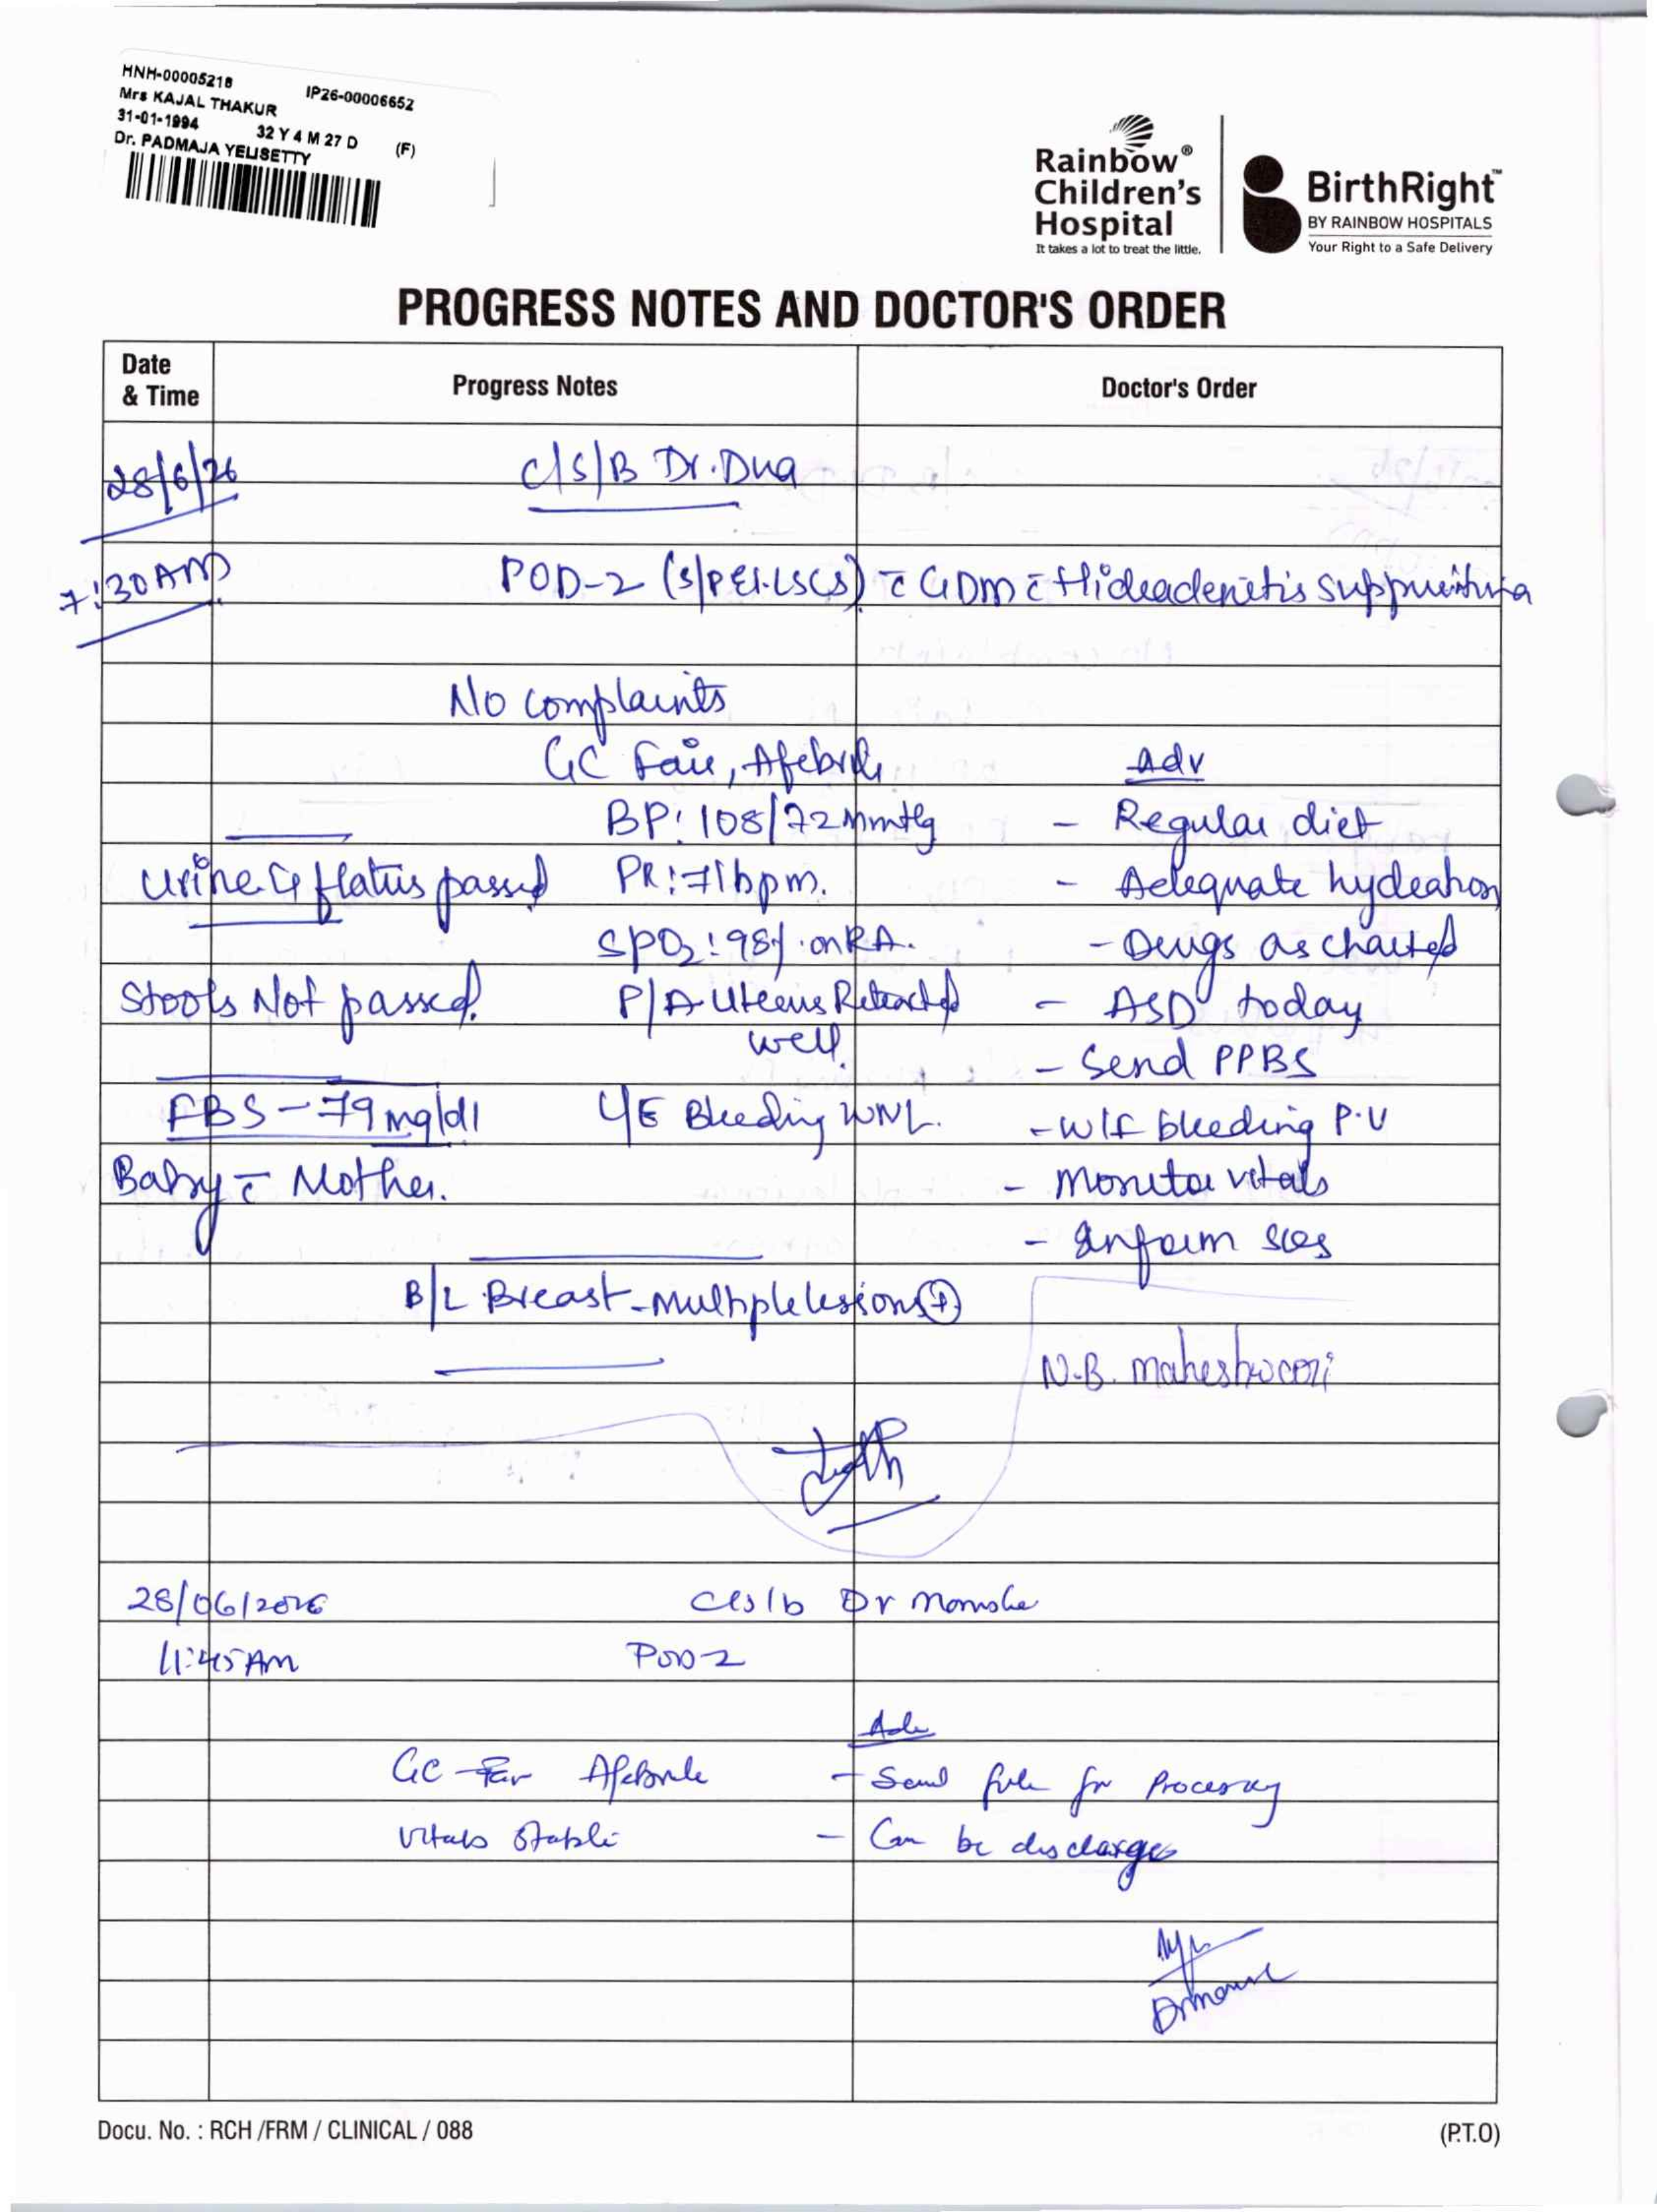 HNH-00005218 IP26-00006652
Mrs KAJAL THAKUR
31-01-1994 32 Y 4 M 27 D (F)
Dr. PADMAJA YELISETTY
Rainbow® Children's Hospital
It takes a lot to treat the little.
BirthRight™
BY RAINBOW HOSPITALS
Your Right to a Safe Delivery
PROGRESS NOTES AND DOCTOR'S ORDER
Date & Time Progress Notes Doctor's Order
28/6/26 C/S/B Dr.Dua
7:30AM POD-2 (S/P El.LSCS) c̄ GDM c̄ Hideadenitis suppuritiva
No complaints
GC Fair, Afebrile adv
BP: 108/72mmHg - Regular diet
Urine & flatus passed PR: 71bpm. - Adequate hydration
SPO2: 98% on RA. - Drugs as charted
Stools Not passed. P/A Uterus Retracted well. - ASD today
- Send PPBS
FBS - 79mg/dl L/E Bleeding WNL. - W/F bleeding P.V
Baby c̄ Mother. - Monitor vitals
- Inform SOS
B/L Breast - multiple lesions ⊕
N.B. maheshwari
28/06/2026 C/s/b Dr
11:45 AM POD-2
Adv
GC - Fair Afebrile - Send file for Processing
Vitals stable - Can be discharge
Docu. No. : RCH /FRM / CLINICAL / 088 (P.T.O)